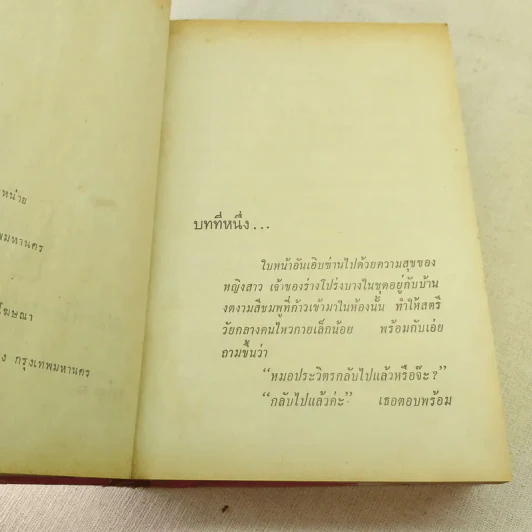 หน่าย
พมหานคร
โฆษณา
ง กรุงเทพมหานคร
บทที่หนึ่ง...
ใบหน้าอันเอิบซ่านไปด้วยความสุขของ
หญิงสาว เจ้าของร่างโปร่งบางในชุดอยู่กับบ้าน
งดงามสีชมพูที่ก้าวเข้ามาในห้องนั้น ทำให้สตรี
วัยกลางคนไหวกายเล็กน้อย พร้อมกับเอ่ย
ถามขึ้นว่า
“หมอประวิตรกลับไปแล้วหรือจ๊ะ?”
“กลับไปแล้วค่ะ” เธอตอบพร้อม